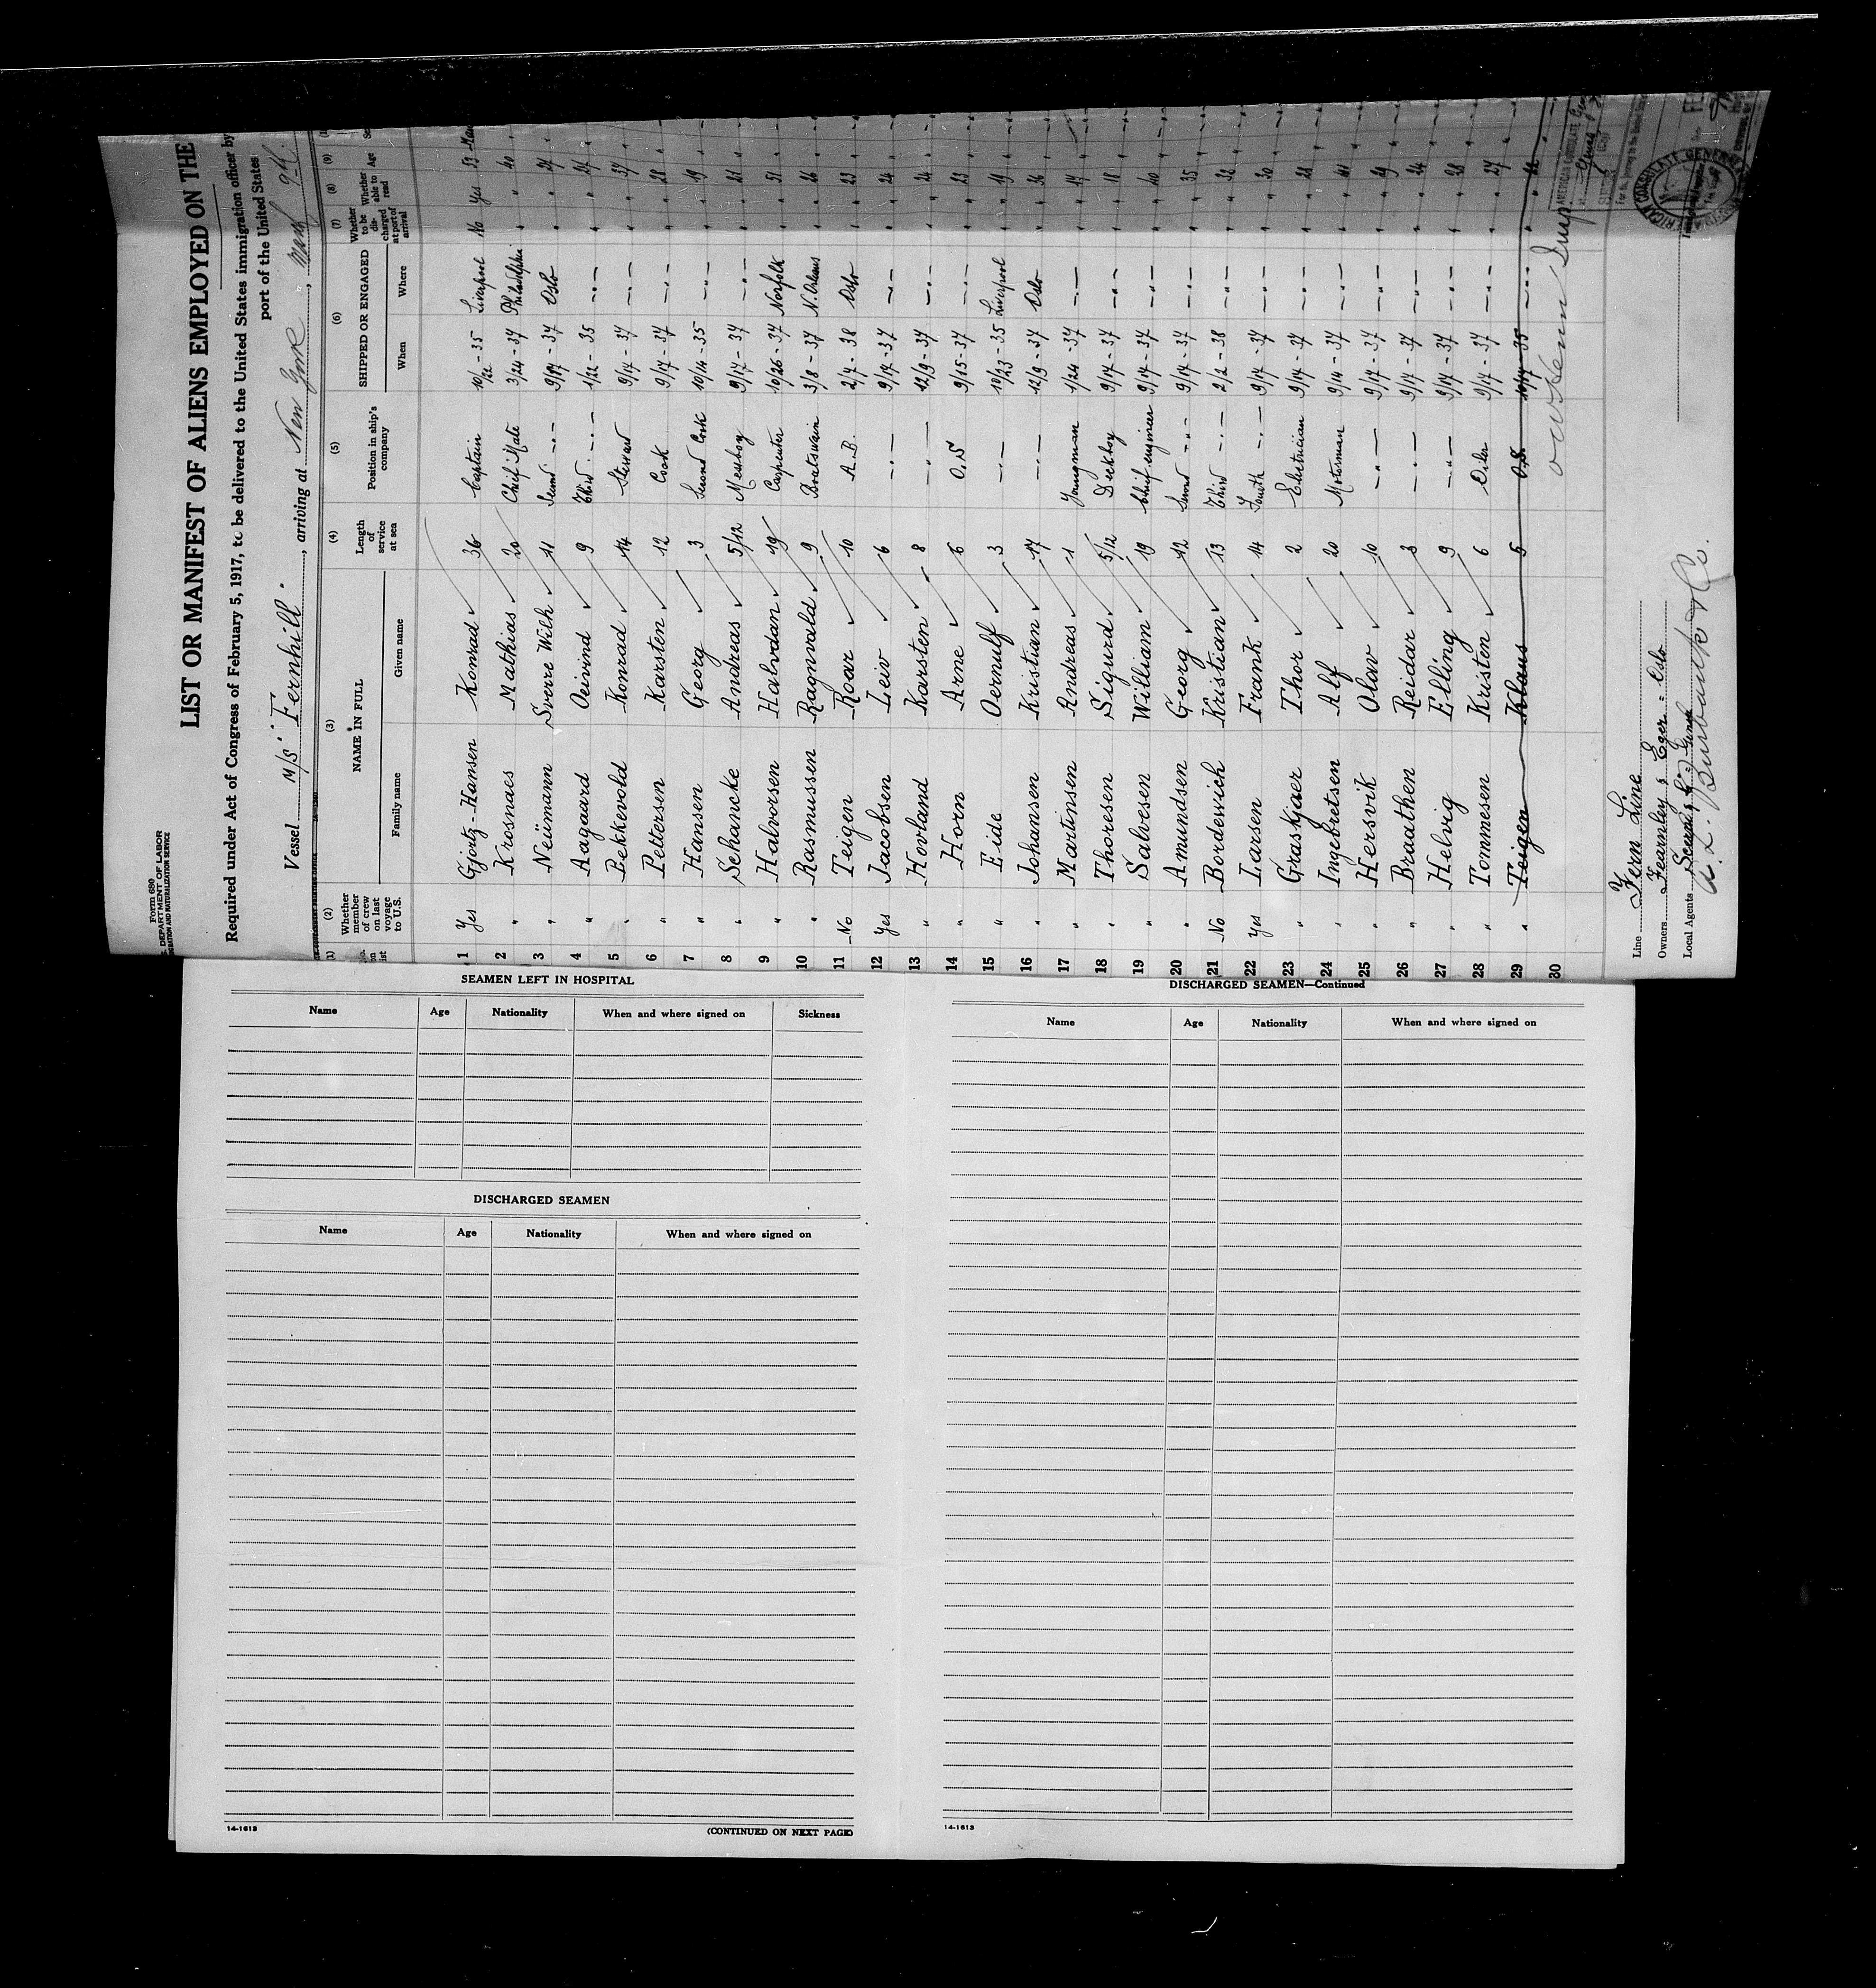 Form 680
U.S. DEPARTMENT OF LABOR
IMMIGRATION AND NATURALIZATION SERVICE
LIST OR MANIFEST OF ALIENS EMPLOYED ON THE
Required under Act of Congress of February 5, 1917, to be delivered to the United States immigration officer by
port of the United States
Vessel M/S "Fernhill", arriving at New York,
(1) (2) (3) (4) (5) (6) (7) (8) (9)
Whether member of crew on last voyage to U.S. NAME IN FULL Length of service at sea Position in ship's company SHIPPED OR ENGAGED Whether to be discharged at port of arrival Whether able to read Age
Family name Given name When Where
1 Yes Gjortz-Hansen Konrad 36 Captain 10/22 - 35 Liverpool No Yes 53
2 " Krosnaes Mathias 20 Chief Mate 3/24 - 37 Philadelphia " " 40
3 " Neümann Sverre Wilh 11 Second -"- 9/17 - 37 Oslo " "
4 " Aagaard Oeivind 9 Third -"- 1/22 - 35 -"- " "
5 " Bekkevold Konrad 14 Steward 9/17 - 37 -"- " " 37
6 " Pettersen Karsten 12 Cook 9/17 - 37 -"- " " 28
7 " Hansen Georg 3 Second Cook 10/14 - 35 -"- " " 19
8 " Schancke Andreas 5/12 Messboy 9/17 - 37 -"- " " 21
9 " Halvorsen Halvdan 19 Carpenter 10/26 - 37 Norfolk " " 51
10 " Rasmussen Ragnvald 9 Boatswain 3/8 - 37 N. Orleans " " 26
11 No Teigen Roar 10 A.B. 2/7 - 38 Oslo " " 23
12 Yes Jacobsen Leiv 6 -"- 9/17 - 37 -"- " " 24
13 " Hovland Karsten 8 -"- 12/9 - 37 -"- " " 24
14 " Horn Arne 6 O.S 9/15 - 37 -"- " " 23
15 " Eide Oernulf 3 -"- 10/23 - 35 Liverpool " " 19
16 " Johansen Kristian 17 -"- 12/9 - 37 Oslo " " 36
17 " Martinsen Andreas 1 Youngman 1/24 - 37 -"- " " 17
18 " Thoresen Sigurd 5/12 Deckboy 9/17 - 37 -"- " " 18
19 " Salvesen William 19 Chief engineer 9/17 - 37 -"- " " 40
20 " Amundsen Georg 12 Second -"- 9/17 - 37 -"- " " 35
21 No Bordewich Kristian 13 Third -"- 2/2 - 38 -"- " " 32
22 Yes Larsen Frank 14 Fourth -"- 9/17 - 37 -"- " " 30
23 " Graskjaer Thor 2 Electrician 9/17 - 37 -"- " " 28
24 " Ingebretsen Alf 20 Motorman 9/14 - 37 -"- " " 41
25 " Hersvik Olav 10 -"- 9/17 - 37 -"- " " 29
26 " Braathen Reidar 3 -"- 9/17 - 37 -"- " " 24
27 " Helvig Elling 9 -"- 9/17 - 37 -"- " " 28
28 " Tonnesen Kristen 6 Oiler 9/17 - 37 -"- " " 27
29 " Teigen Klaus 5 O.S. 10/17 - 35 -"- " " 22
30
Line Fern Line
Owners Fearnley & Eger - Oslo
Local Agents
A. L. Burbank & Co.
AMERICAN CONSULATE GENERAL
SEAMEN LEFT IN HOSPITAL
Name Age Nationality When and where signed on Sickness
DISCHARGED SEAMEN
Name Age Nationality When and where signed on
14-1613 (CONTINUED ON NEXT PAGE)
DISCHARGED SEAMEN—Continued
Name Age Nationality When and where signed on
14-1613